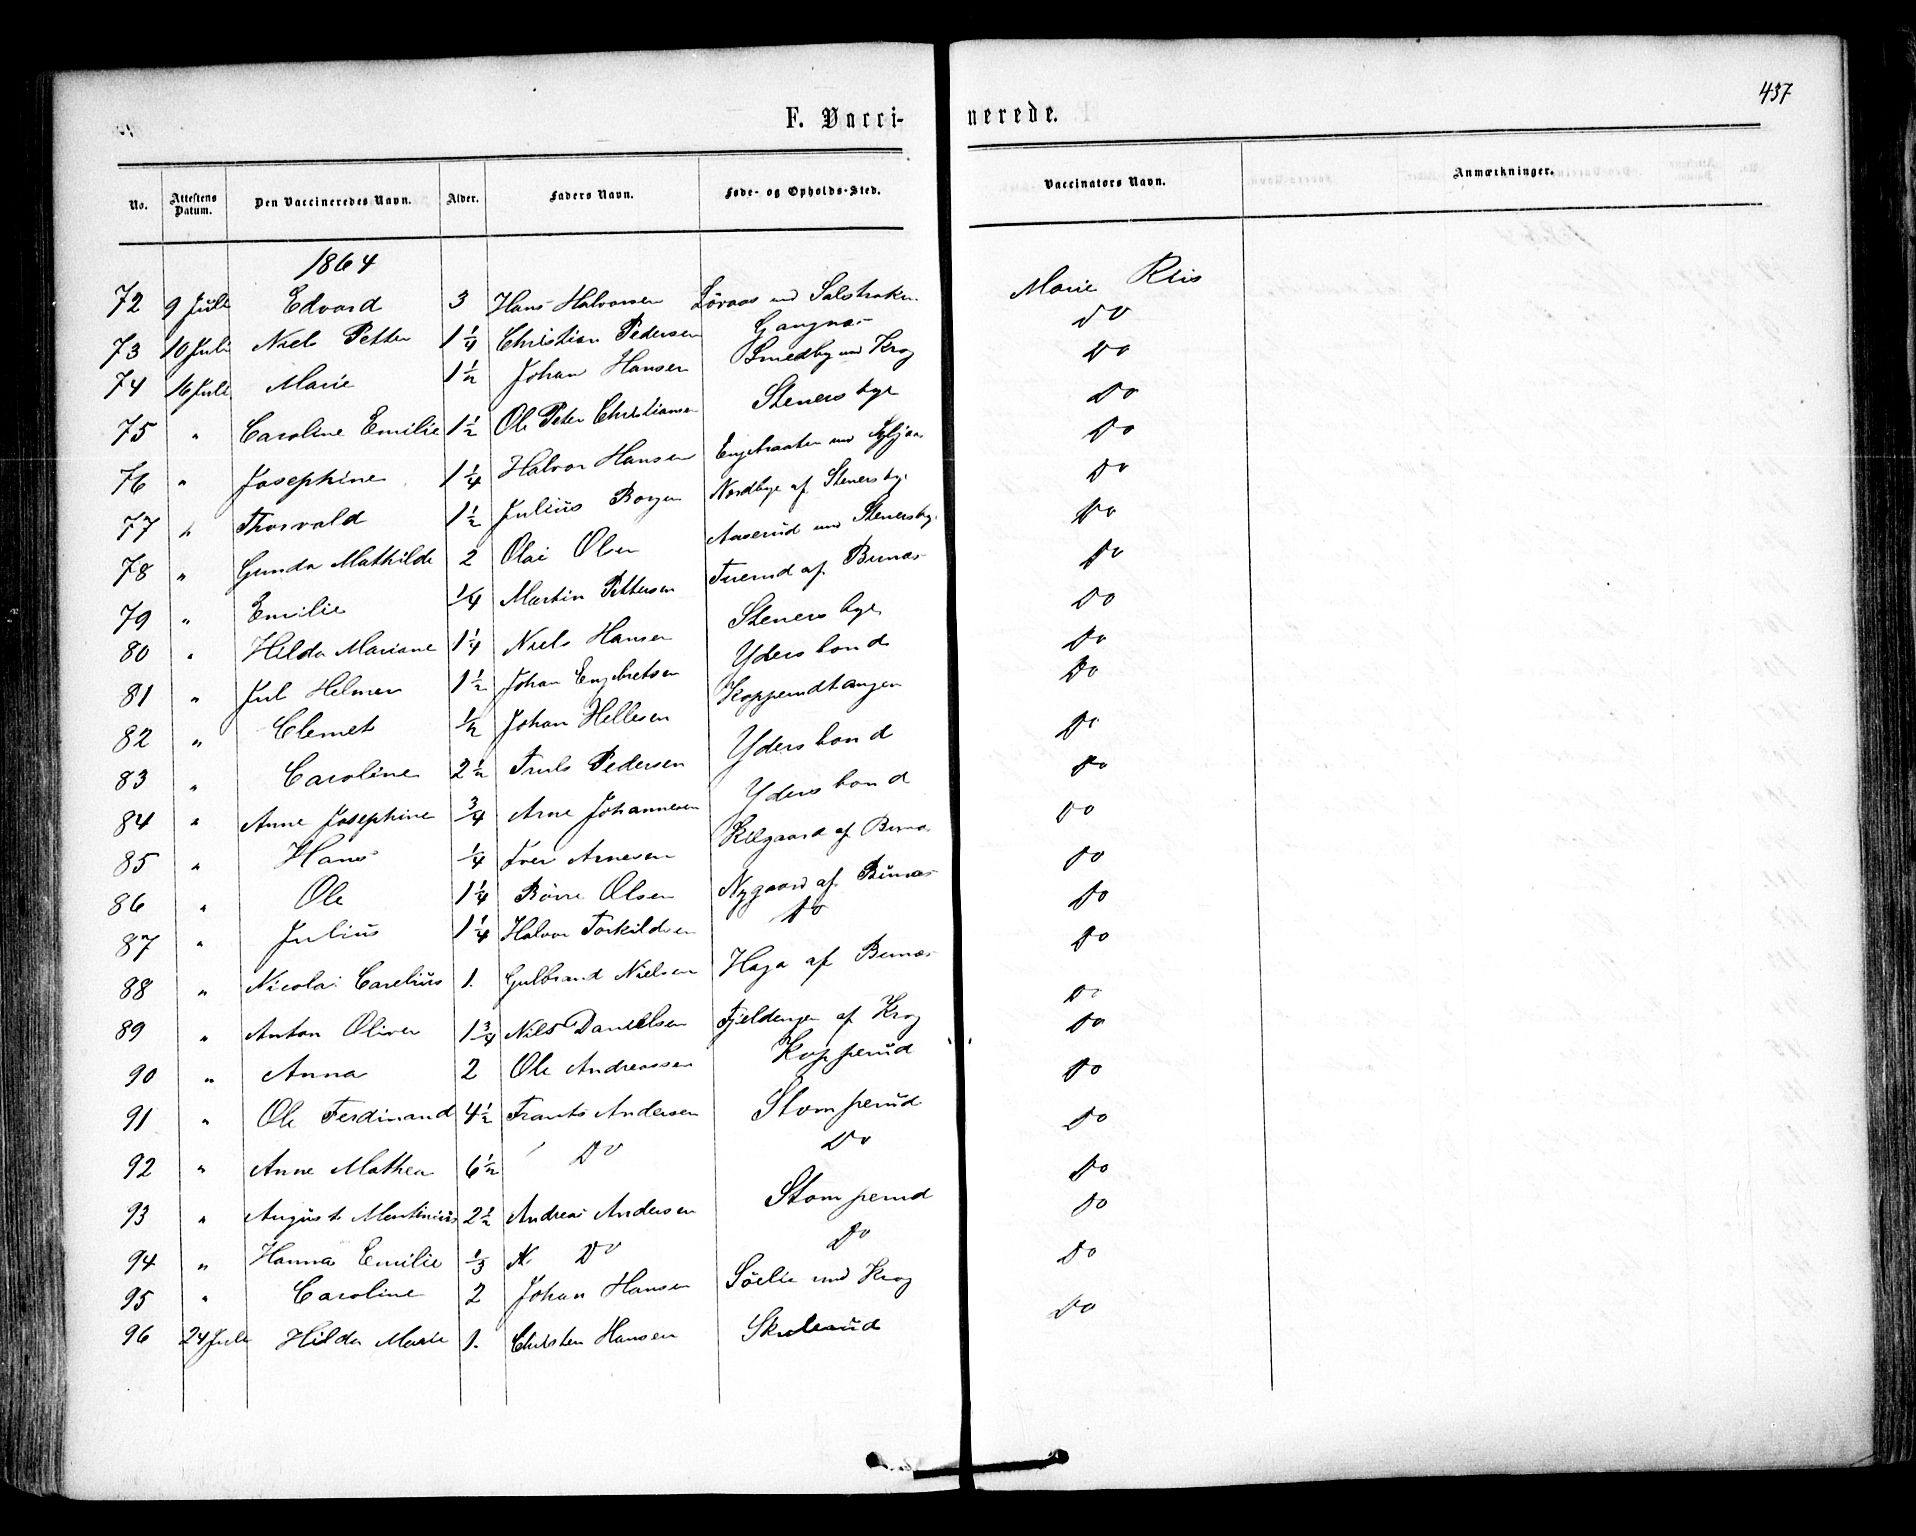 437
F. Vaccinerede.
No. Attestens Datum. Den Vaccineredes Navn. Alder. Faders Navn. Føde- og Opholds-Sted. Vaccinators Navn. Anmærkninger.
1864
72 9 Juli Edvard 3 Hans Halvorsen Løvaas und Marie Riis
73 10 Juli Niels Petter 1 1/4 Christian Pedersen Gangnæs Do
74 16 Juli Marie 1 1/2 Johan Hansen Smedby und Krog Do
75 " Caroline Emilie 1 1/2 Ole Peter Christiansen Stenersbye Do
76 " Josephine 1 1/4 Halvor Hansen Do
77 " Thorvald 1 1/2 Julius Borgen Nordbye af Stenersby Do
78 " Gunda Mathilde 2 Olai Olsen Aaserud und Stenersby Do
79 " Emilie 1/4 Martin Pettersen Tuerud af Bunæs Do
80 " Hilda Mariane 1 1/4 Niels Hansen Stenersbye Do
81 " Jul Helmer 1 1/2 Johan Engebretsen Ydersbond Do
82 " Clemet 1/2 Johan Hellesen Kopperudtangen Do
83 " Caroline 2 1/2 Truls Pedersen Ydersbond Do
84 " Anne Josephine 3/4 Arne Johannesen Ydersbond Do
85 " Hans 1/4 Iver Arnesen af Bunæs Do
86 " Ole 1 1/4 Børre Olsen Nygaard af Bunæs Do
87 " Julius 1 1/4 Halvor Torkildsen Do Do
88 " Nicolai Carelius 1. Gulbrand Nielsen Haga af Bunæs Do
89 " Anton Oliver 1 3/4 Nils Danielsen Fjeldengen af Krog Do
90 " Anna 2 Ole Andreassen Kopperud Do
91 " Ole Ferdinand 4 1/2 Frants Andersen Stomperud Do
92 " Anne Mathea 6 1/2 Do Do Do
93 " August Martinius 2 1/2 Andreas Andersen Stomperud Do
94 " Hanna Emilie 1/3 Do Do Do
95 " Caroline 2 Johan Hansen Sølie und Krog Do
96 24 Juli Hilda Marie 1. Christen Hansen Skulerud Do